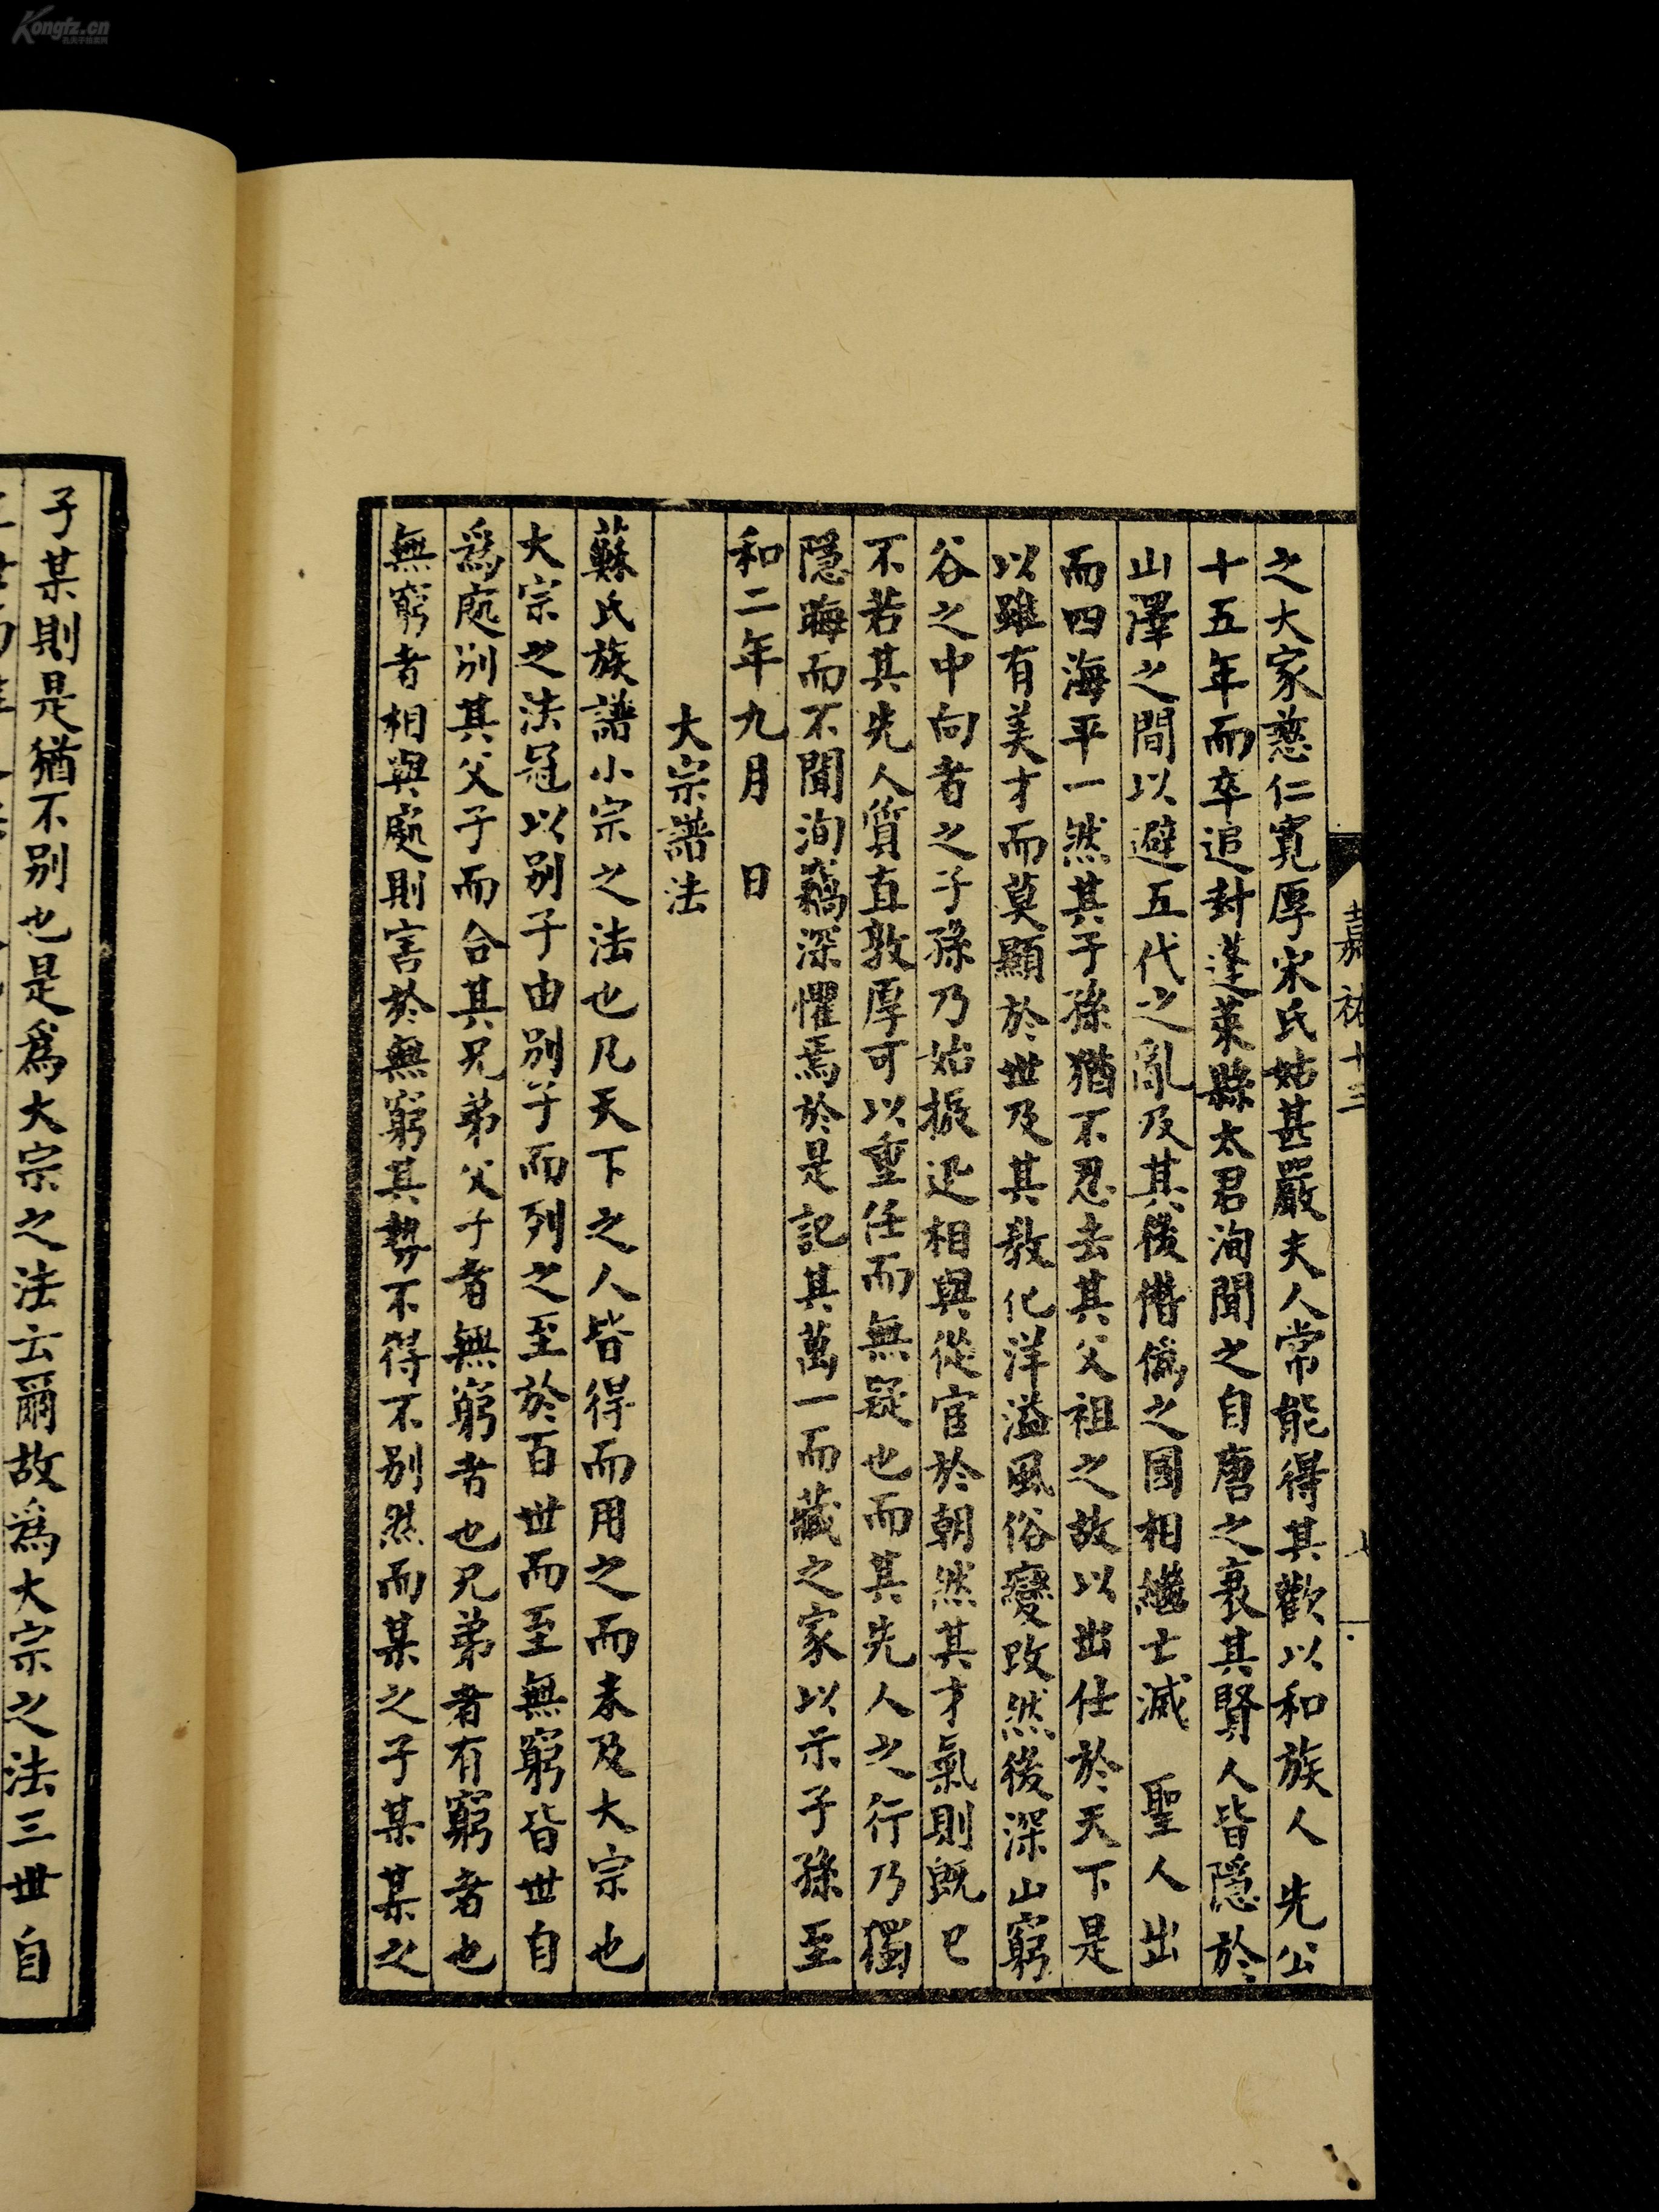 Kongfz.cn
嘉祐十三
之大家慈仁寬厚宋氏姑甚嚴夫人常能得其歡以和族人 先公
十五年而卒追封蓬萊縣太君洵聞之自唐之衰其賢人皆隱於
山澤之間以避五代之亂及其後僭僞之國相繼亡滅 聖人出
而四海平一然其子孫猶不忍去其父祖之故以出仕於天下是
以雖有美才而莫顯於世及其教化洋溢風俗變改然後深山窮
谷之中向者之子孫乃始振迅相與從官於朝然其才氣則旣已
不若其先人質直敦厚可以重任而無疑也而其先人之行乃獨
隱晦而不聞洵竊深懼焉於是記其萬一而藏之家以示子孫至
和二年九月 日
大宗譜法
蘇氏族譜小宗之法也凡天下之人皆得而用之而未及大宗也
大宗之法冠以別子由別子而列之至於百世而至無窮皆世自
爲處別其父子而合其兄弟父子者無窮者也兄弟者有窮者也
無窮者相與處則害於無窮其勢不得不別然而某之子某某之
子某則是猶不別也是爲大宗之法云爾故爲大宗之法三世自